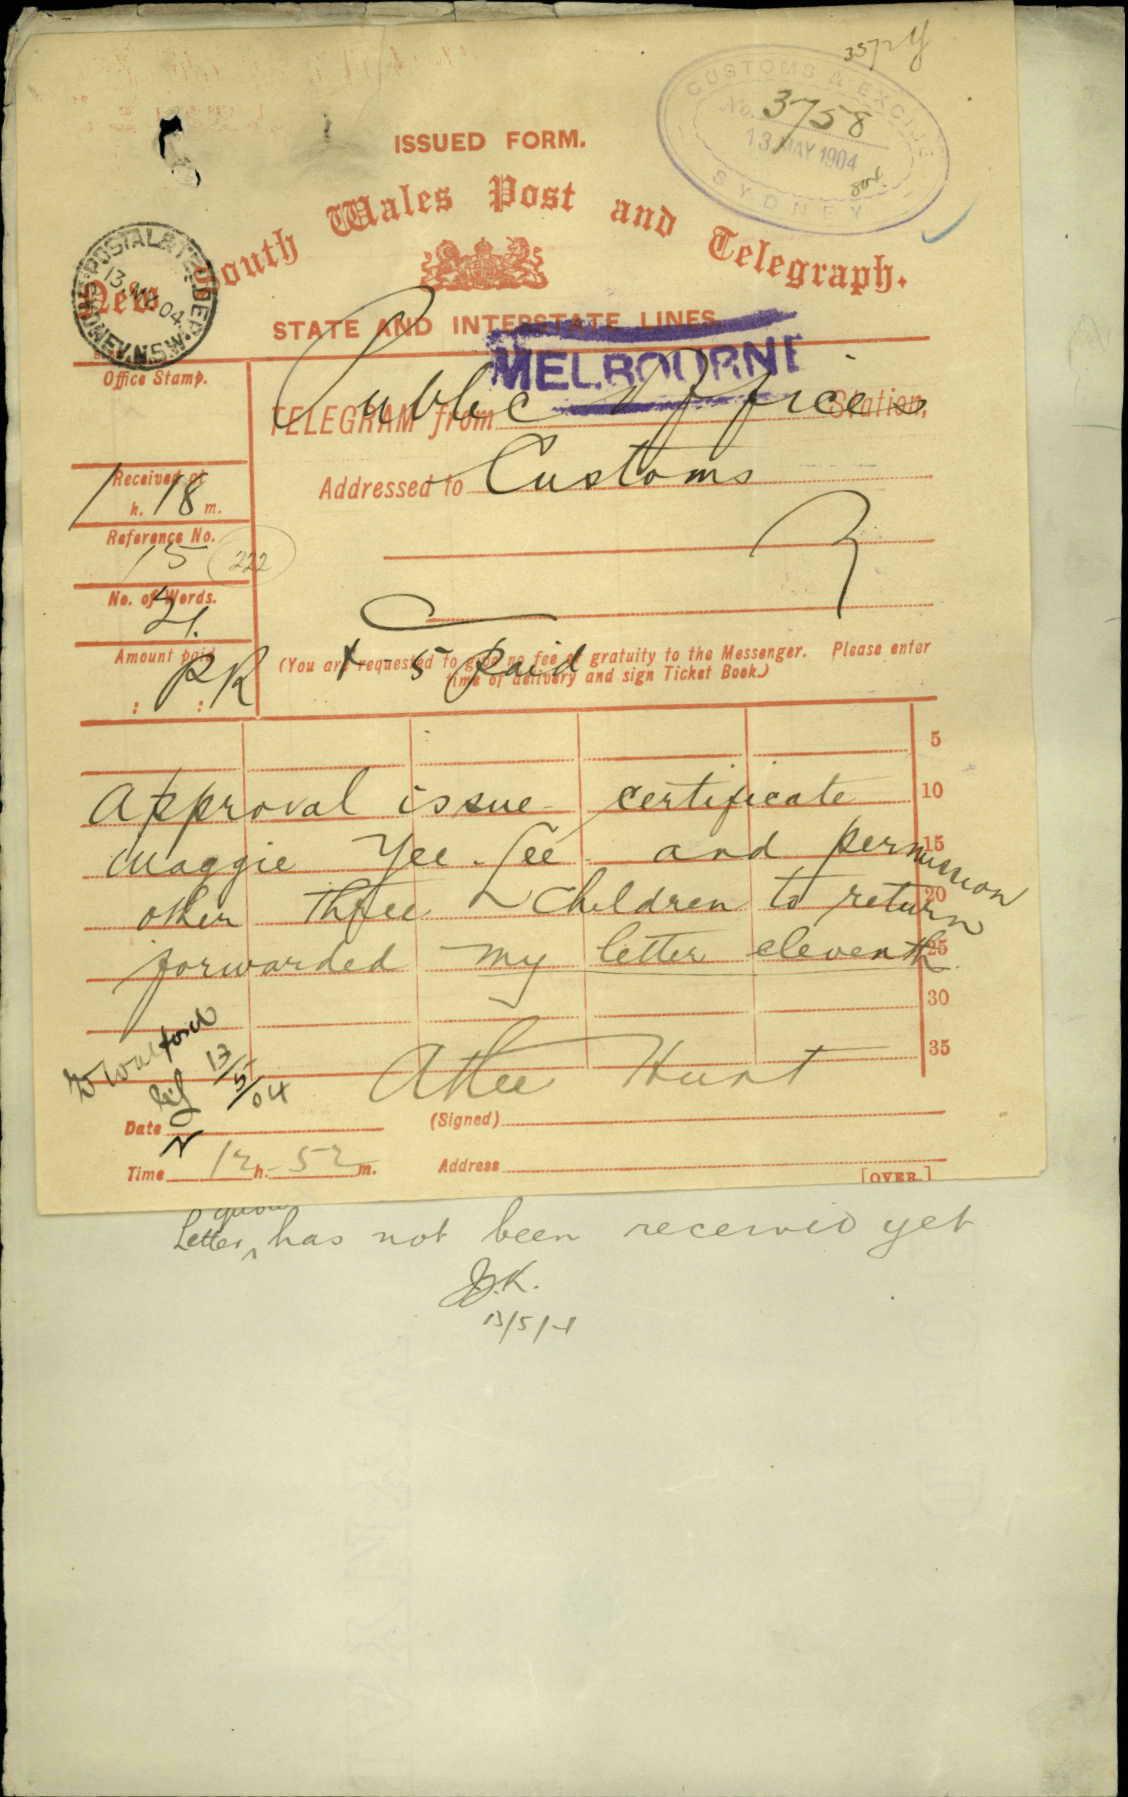 3572 Y
CUSTOMS & EXCISE
No. 3758
13 MAY 1904
SYDNEY
ISSUED FORM.
New South Wales Post and Telegraph.
POSTAL & TEL. DEP.
13 MY 04
SYDNEY. N.S.W.
STATE AND INTERSTATE LINES
MELBOURNE
Office Stamp.
TELEGRAM from Public Offices Station,
Addressed to Customs
Received at
1 h. 18 m.
Reference No.
15 222
No. of Words.
21.
Amount paid
: PR :
(You are requested to give no fee or gratuity to the Messenger. Please enter
time of delivery and sign Ticket Book.)
+ 5 paid
5
Approval issue certificate 10
Maggie Yee Lee and permission 15
other three children to return 20
forwarded my letter eleventh 25
30
35
Atlee Hunt
Walford
13/5/04
Date
(Signed)
Time 12 h. 52 m.
Address
[OVER.]
Letter has not been received yet
J.K.
13/5/4